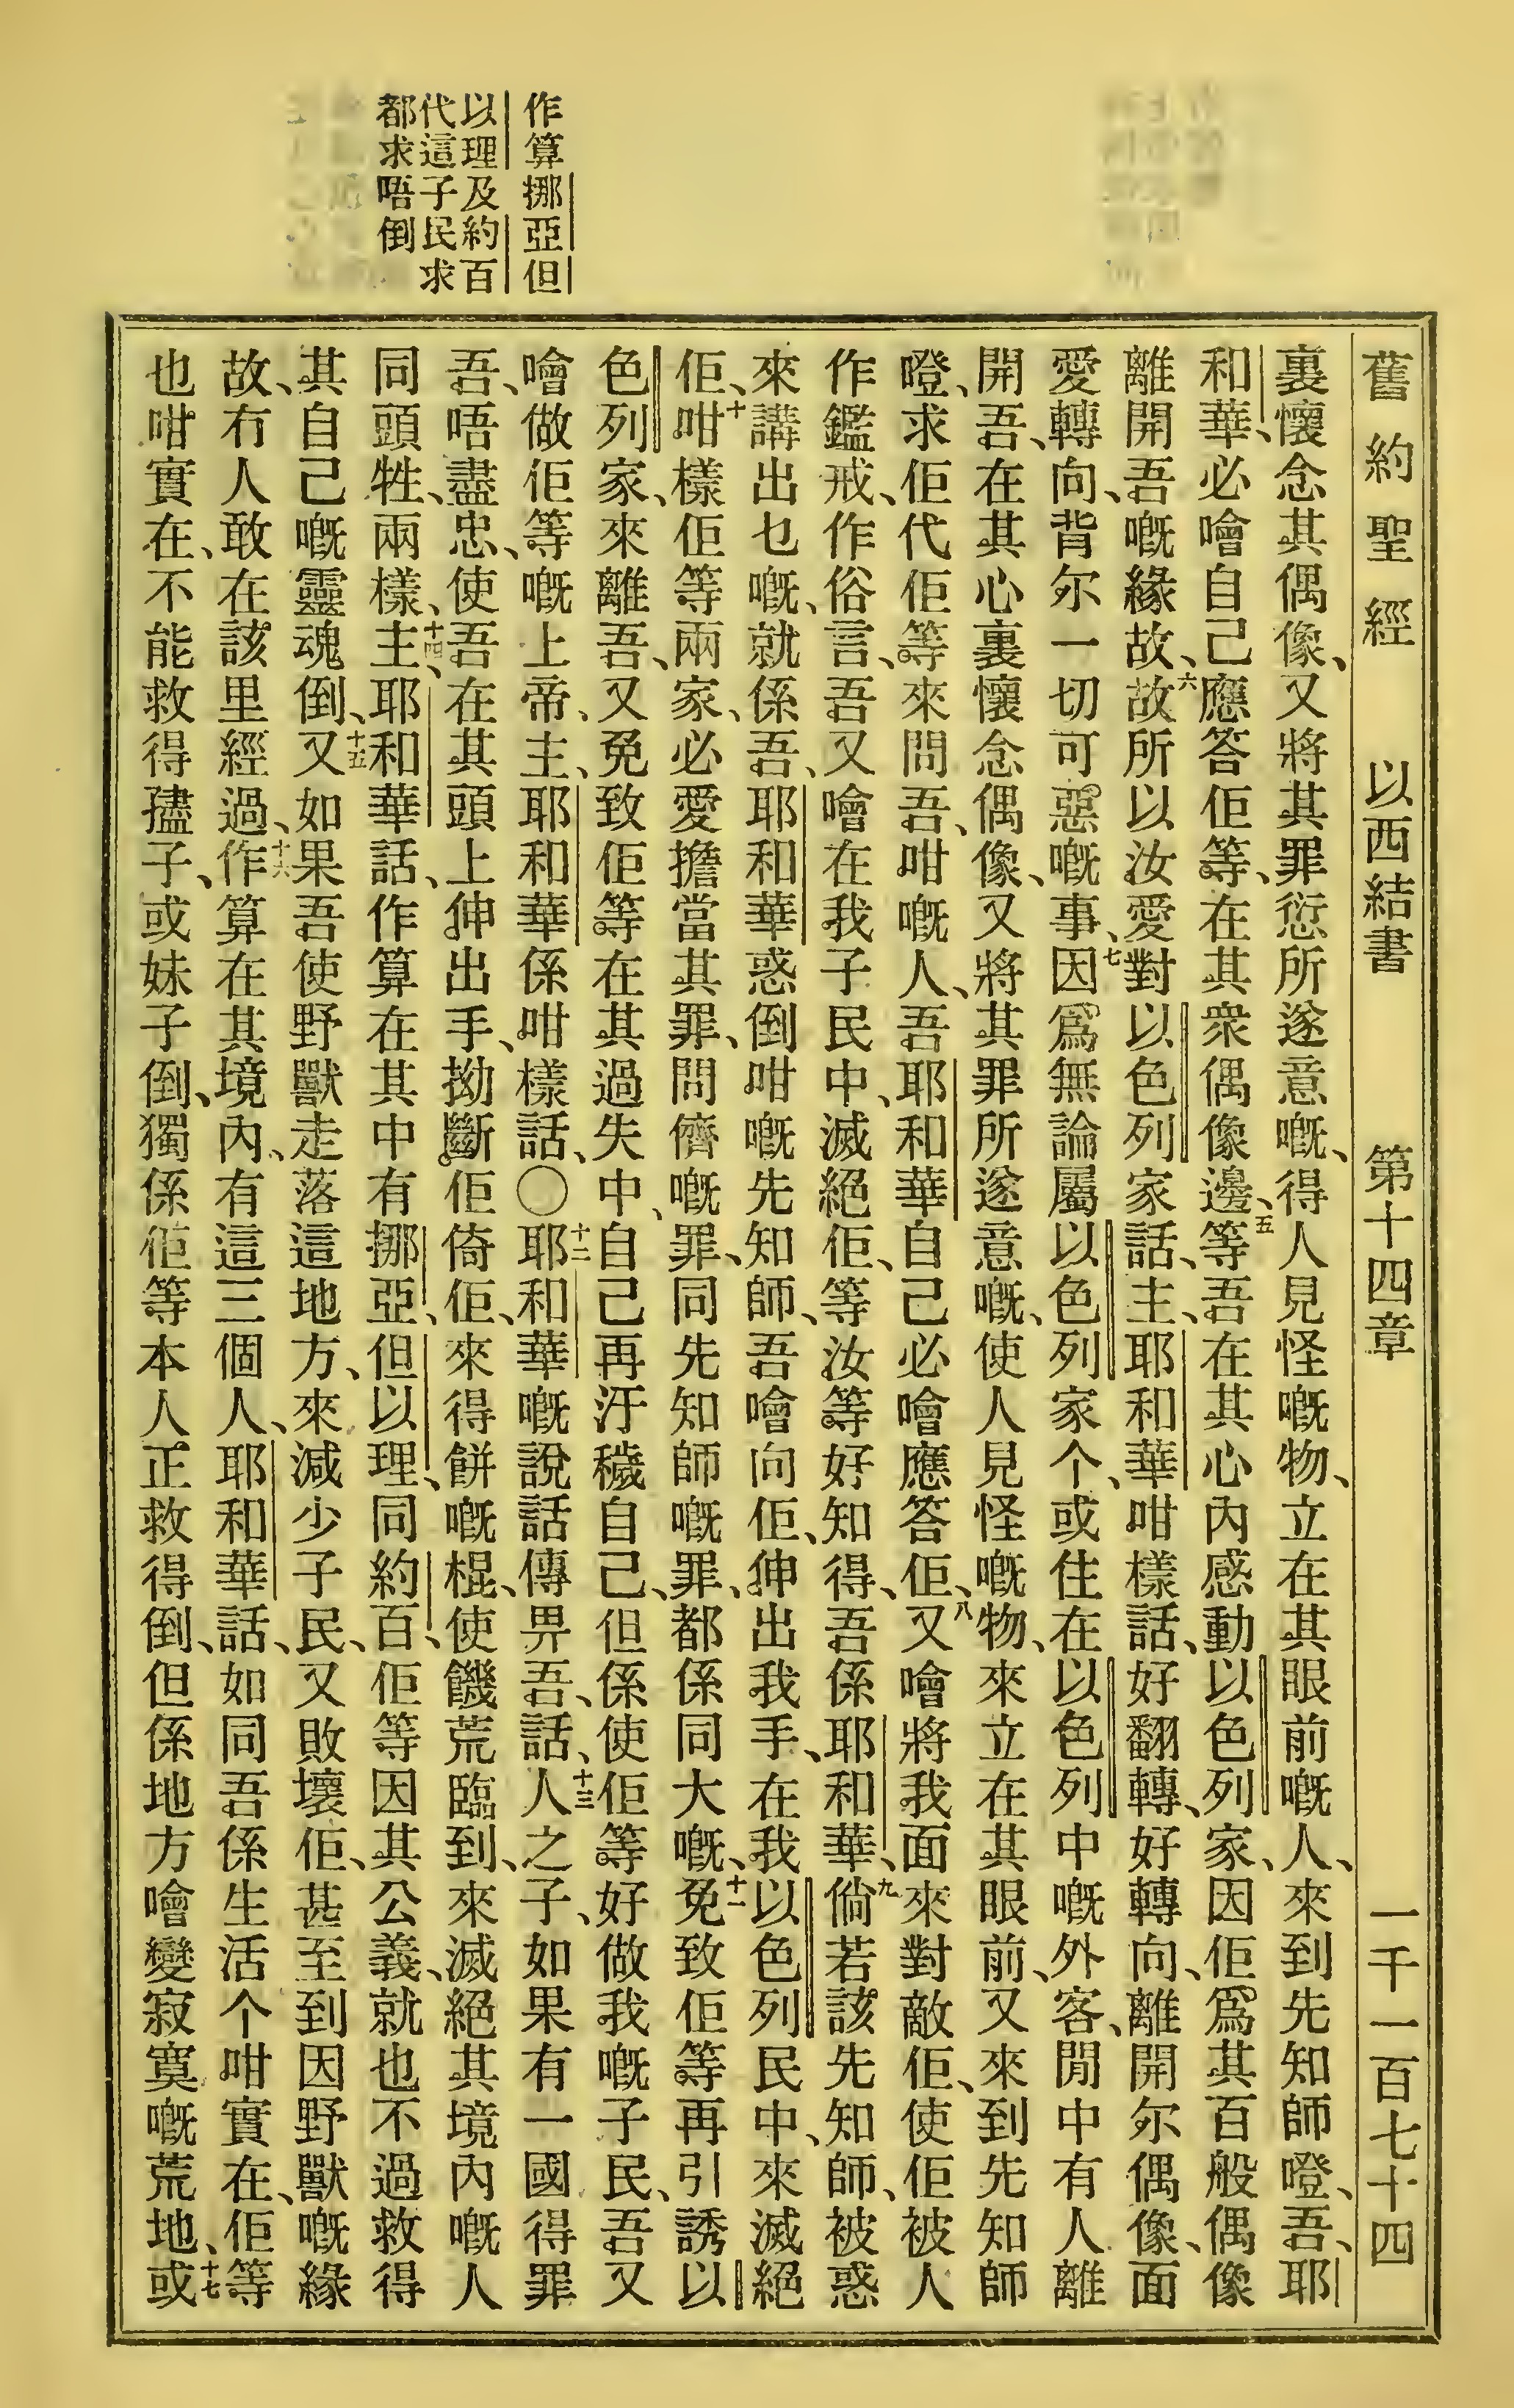 舊約聖經 以西結書 第十四章 一千一百七十四
裏懷念其偶像、又將其罪愆所遂意嘅、得人見怪嘅物、立在其眼前嘅人、來到先知師嶝、吾、耶
和華、必噲自己應答佢等、在其衆偶像邊、五等吾在其心內感動以色列家、因佢爲其百般偶像
離開吾嘅緣故、六故所以汝愛對以色列家話、主、耶和華咁樣話、好翻轉、好轉向、離開尔偶像、面
愛轉向、背尔一切可惡嘅事、七因爲無論屬以色列家个、或住在以色列中嘅外客、閒中有人離
開吾、在其心裏懷念偶像、又將其罪所遂意嘅、使人見怪嘅物、來立在其眼前、又來到先知師
嶝、求佢代佢等來問吾、咁嘅人、吾耶和華自己必噲應答佢、八又噲將我面來對敵佢、使佢被人
作鑑戒、作俗言、吾又噲在我子民中、滅絕佢、等汝等好知得、吾係耶和華、九倘若該先知師、被惑
來講出乜嘅、就係吾、耶和華惑倒咁嘅先知師、吾噲向佢、伸出我手、在我以色列民中、來滅絕
佢、十咁樣佢等兩家、必愛擔當其罪、問儕嘅罪、同先知師嘅罪、都係同大嘅、十一免致佢等再引誘以
色列家、來離吾、又免致佢等在其過失中、自己再汙穢自己、但係使佢等好做我嘅子民、吾又
噲做佢等嘅上帝、主、耶和華係咁樣話、〇十二耶和華嘅說話傳畀吾、話、十三人之子、如果有一國得罪
吾、唔盡忠、使吾在其頭上伸出手、拗斷佢倚佢、來得餅嘅棍、使饑荒臨到、來滅絕其境內嘅人
同頭牲、兩樣、十四主、耶和華話、作算在其中有挪亞、但以理、同約百、佢等因其公義、就也不過救得
其自己嘅靈魂倒、十五又如果吾使野獸走落這地方、來減少子民、又敗壞佢、甚至到因野獸嘅緣
故、冇人敢在該里經過、十六作算在其境內、有這三個人、耶和華話、如同吾係生活个咁實在、佢等
也咁實在、不能救得孻子、或妹子倒、獨係佢等本人正救得倒、但係地方噲變寂寞嘅荒地、十七或
作算挪亞但
以理及約百
代這子民求
都求唔倒